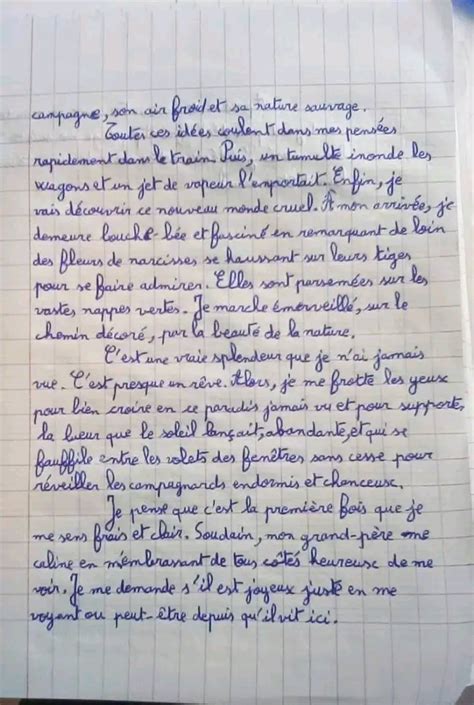 campagne, son air froid et sa nature sauvage.
Toutes ces idées coulent dans mes pensées
rapidement dans le train. Puis, un tumulte inonde les
wagons et un jet de vapeur l'emportait. Enfin, je
vais découvrir ce nouveau monde cruel. À mon arrivée, je
demeure bouche-bée et fasciné en remarquant de loin
des fleurs de narcisses se haussant sur leurs tiges
pour se faire admirer. Elles sont parsemées sur les
vastes nappes vertes. Je marche émerveillé, sur le
chemin décoré, par la beauté de la nature.
C'est une vraie splendeur que je n'ai jamais
vue. C'est presque un rêve. Alors, je me frotte les yeux
pour bien croire en ce paradis jamais vu et pour supporter
la lueur que le soleil lançait, abondante, et qui se
fauffile entre les volets des fenêtres sans cesse pour
réveiller les campagnards endormis et chanceux.
Je pense que c'est la première fois que je
me sens frais et clair. Soudain, mon grand-père me
caline en m'embrassant de tous côtés heureux de me
voir. Je me demande s'il est joyeux juste en me
voyant ou peut-être depuis qu'il vit ici.